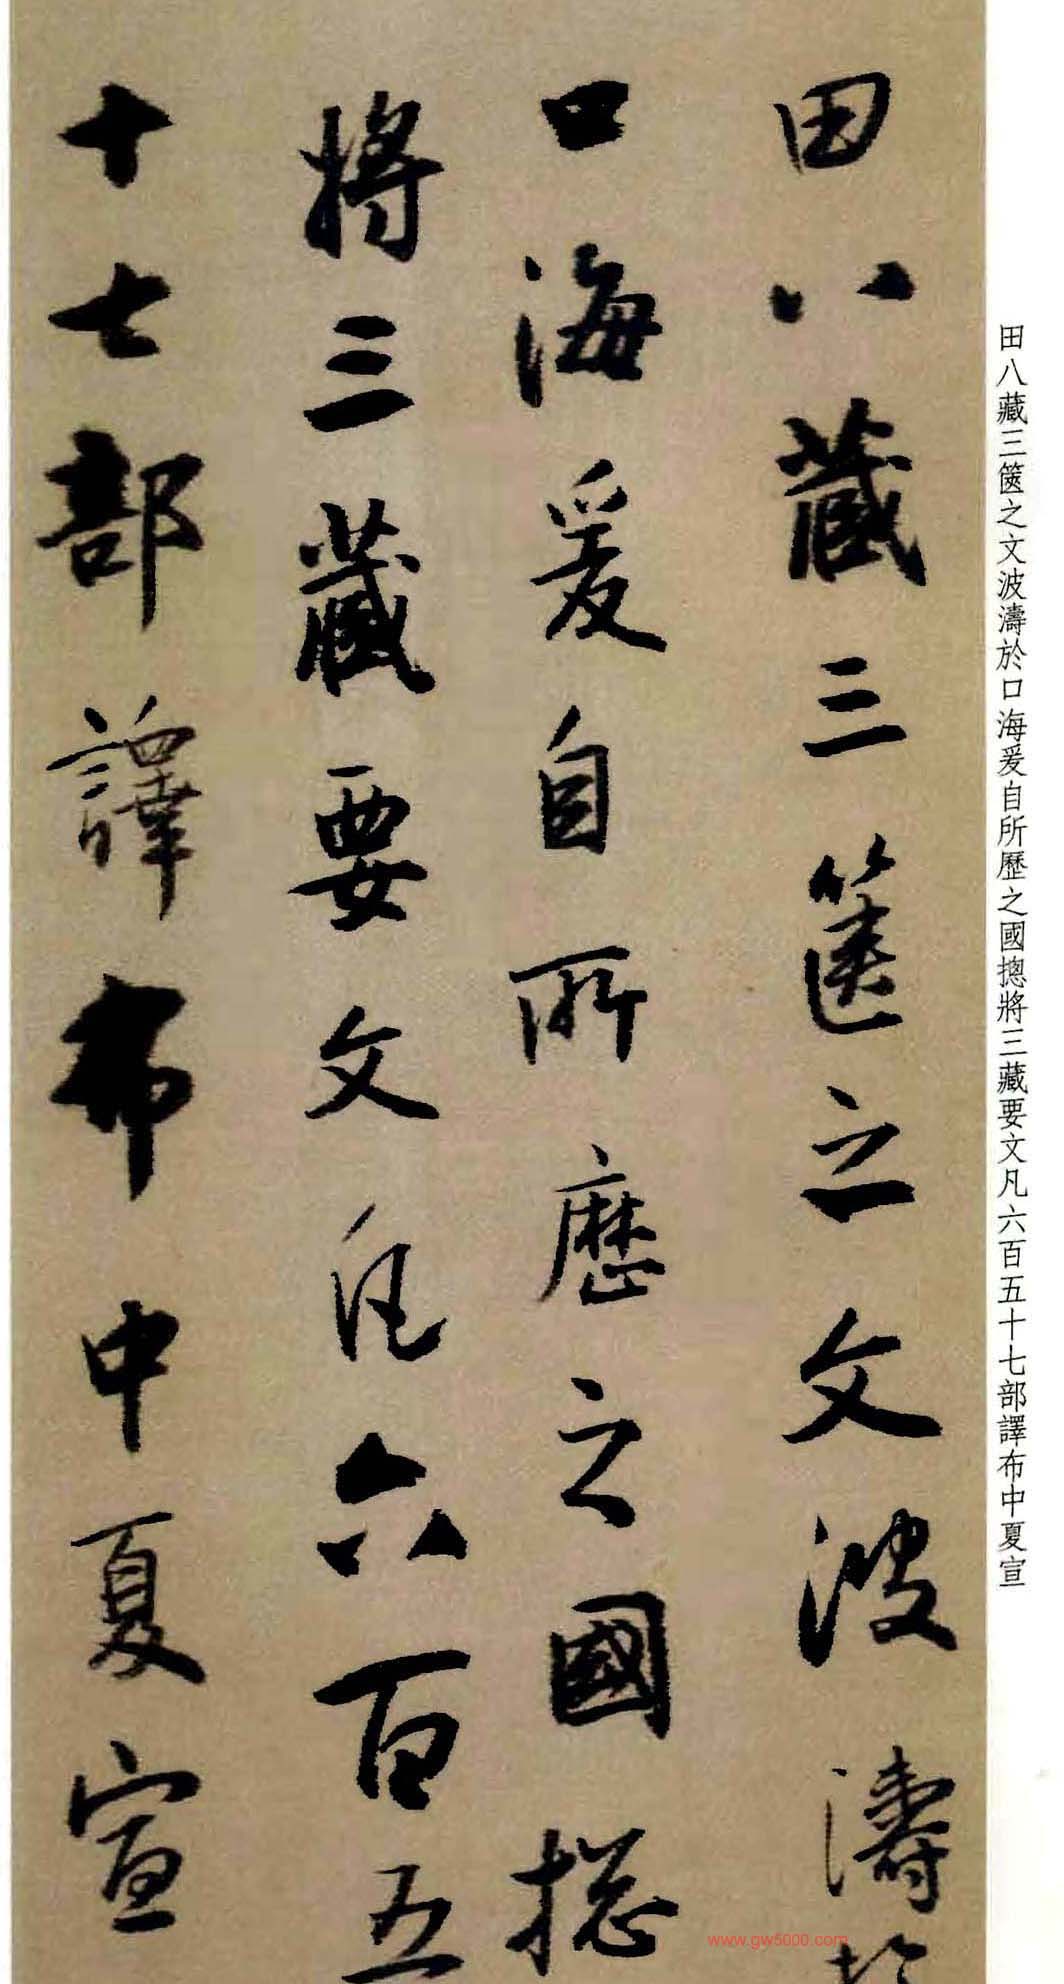 田八藏三篋之文波濤於
口海爰自所歷之國摠
將三藏要文凡六百五
十七部譯布中夏宣
田八藏三篋之文波濤於口海爰自所歷之國摠將三藏要文凡六百五十七部譯布中夏宣
www.gw5000.com